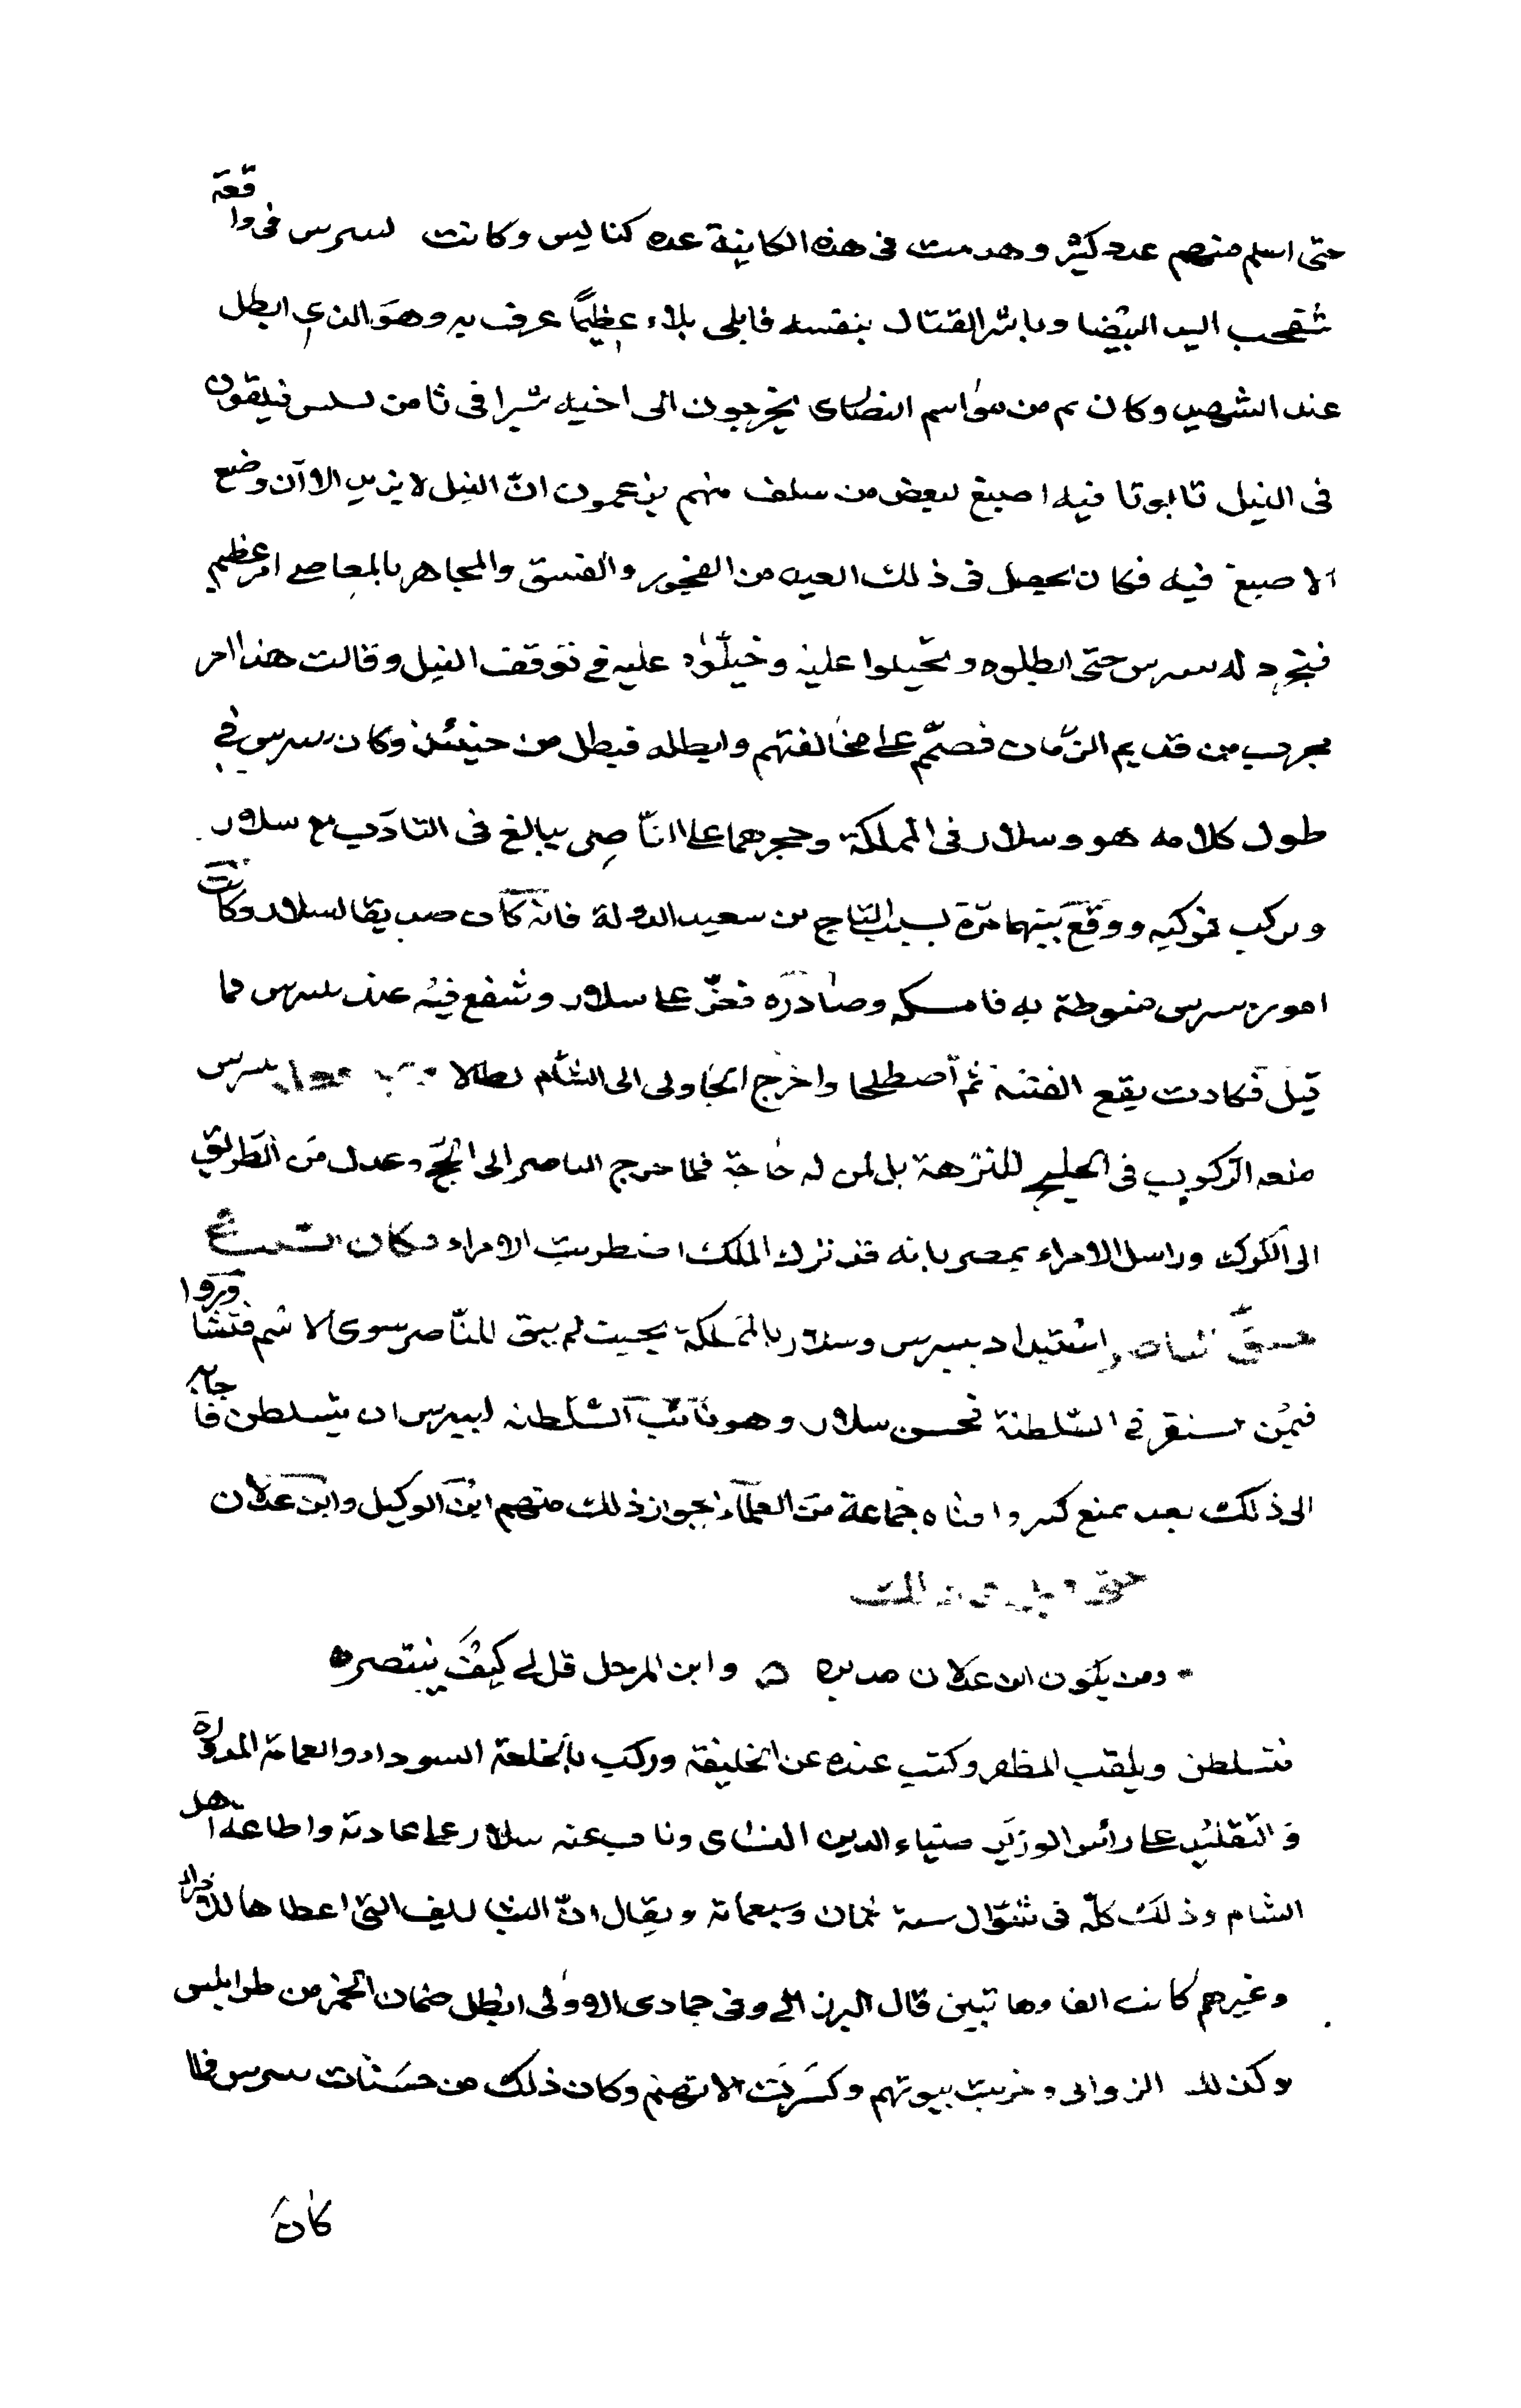 حتى اسلم منهم عدد كثير وهدمت فى هذه الكاينة عده كنايس وكانت لبيبرس فى واقعة
شقحب اليد البيضا وباشر القتال بنفسه فابلى بلاء عظيمًا عرف به وهو الذي ابطل
عند الشهيد وكان من مواسم النصارى يخرجون الى اخيه شبرا فى ثامن بشنس فيلقون
فى النيل تابوتا فيه اصبع لبعض من سلف منهم يزعمون انّ النيل لا يزيد الا ان وضع
الاصبع فيه فكان يحصل فى ذلك العيد من الفجور والفسق والمجاهر بالمعاصے امر عظيم
فتجرد له بيبرس حتى ابطلوه وتحيلوا عليه وخيلوه عليه في توقف النيل وقالت هذا امر
مجرب من قديم الزمان فصمّم على مخالفتهم وابطله فبطل من حينئذ وكان بيبرس في
طول كلامه هو وسلار فى المملكة وحجرهما على الناصر يبالغ فى التادب مع سلار
ويركب بموكبه ووقع بينهما مرّة بسبب التاج بن سعيد الدولة فانه كان صديقا لسلار وكانت
امور بيبرس منوطة به فامسكه وصادره فعزّ على سلار وشفع فيه عند بيبرس فما
قبل فكادت يقع الفتنة ثم اصطلحا واخرج الجاولى الى الشام بطالا بيبرس
منعه الركوب فى الخليج للنزهة بل لمن له حاجة فلما خرج الناصر الى الحج وعدل من الطريق
الى الكرك وراسل الامراء بمصر بانه قد ترك الملك اضطربت الامراء وكان
استبداد بيبرس وسلار بالمملكة بحيث لم يبق للناصر سوى الاسم فتشاوروا
فيمن يستقر في السلطنة فحسن سلار وهو نائب السلطنه لبيبرس ان يتسلطن فاجابه
الى ذلك بعد تمنع كبير وافتاه جماعة من العلماء بجواز ذلك منهم ابن الوكيل وابن عدلان
حتى قيل فى ذلك
ومن يكون ابن عدلان مدبره ه وابن المرحل قل لے كيف ينتصره
فتسلطن ويلقب المظفر وكتب عنده عن الخليفة وركب بالخلعة السوداء والعمامة المدورة
و التقليد على رأس الوزير ضياء الدين النشاى وناب عنه سلار على عادته واطاعه اهل
الشام وذلك كلّه فى شوّال سنة ثمان وسبعمائة ويقال انّ التشاريف التى اعطاها للامراء
وغيرهم كانت الفا ومايتين قال البرزالے وفى جمادى الاولى ابطل ضمان الخمر من طرابلس
وكذلك الزوانى وخربت بيوتهم وكسرت الاتهم وكان ذلك من حسنات بيبرس فلما
كان